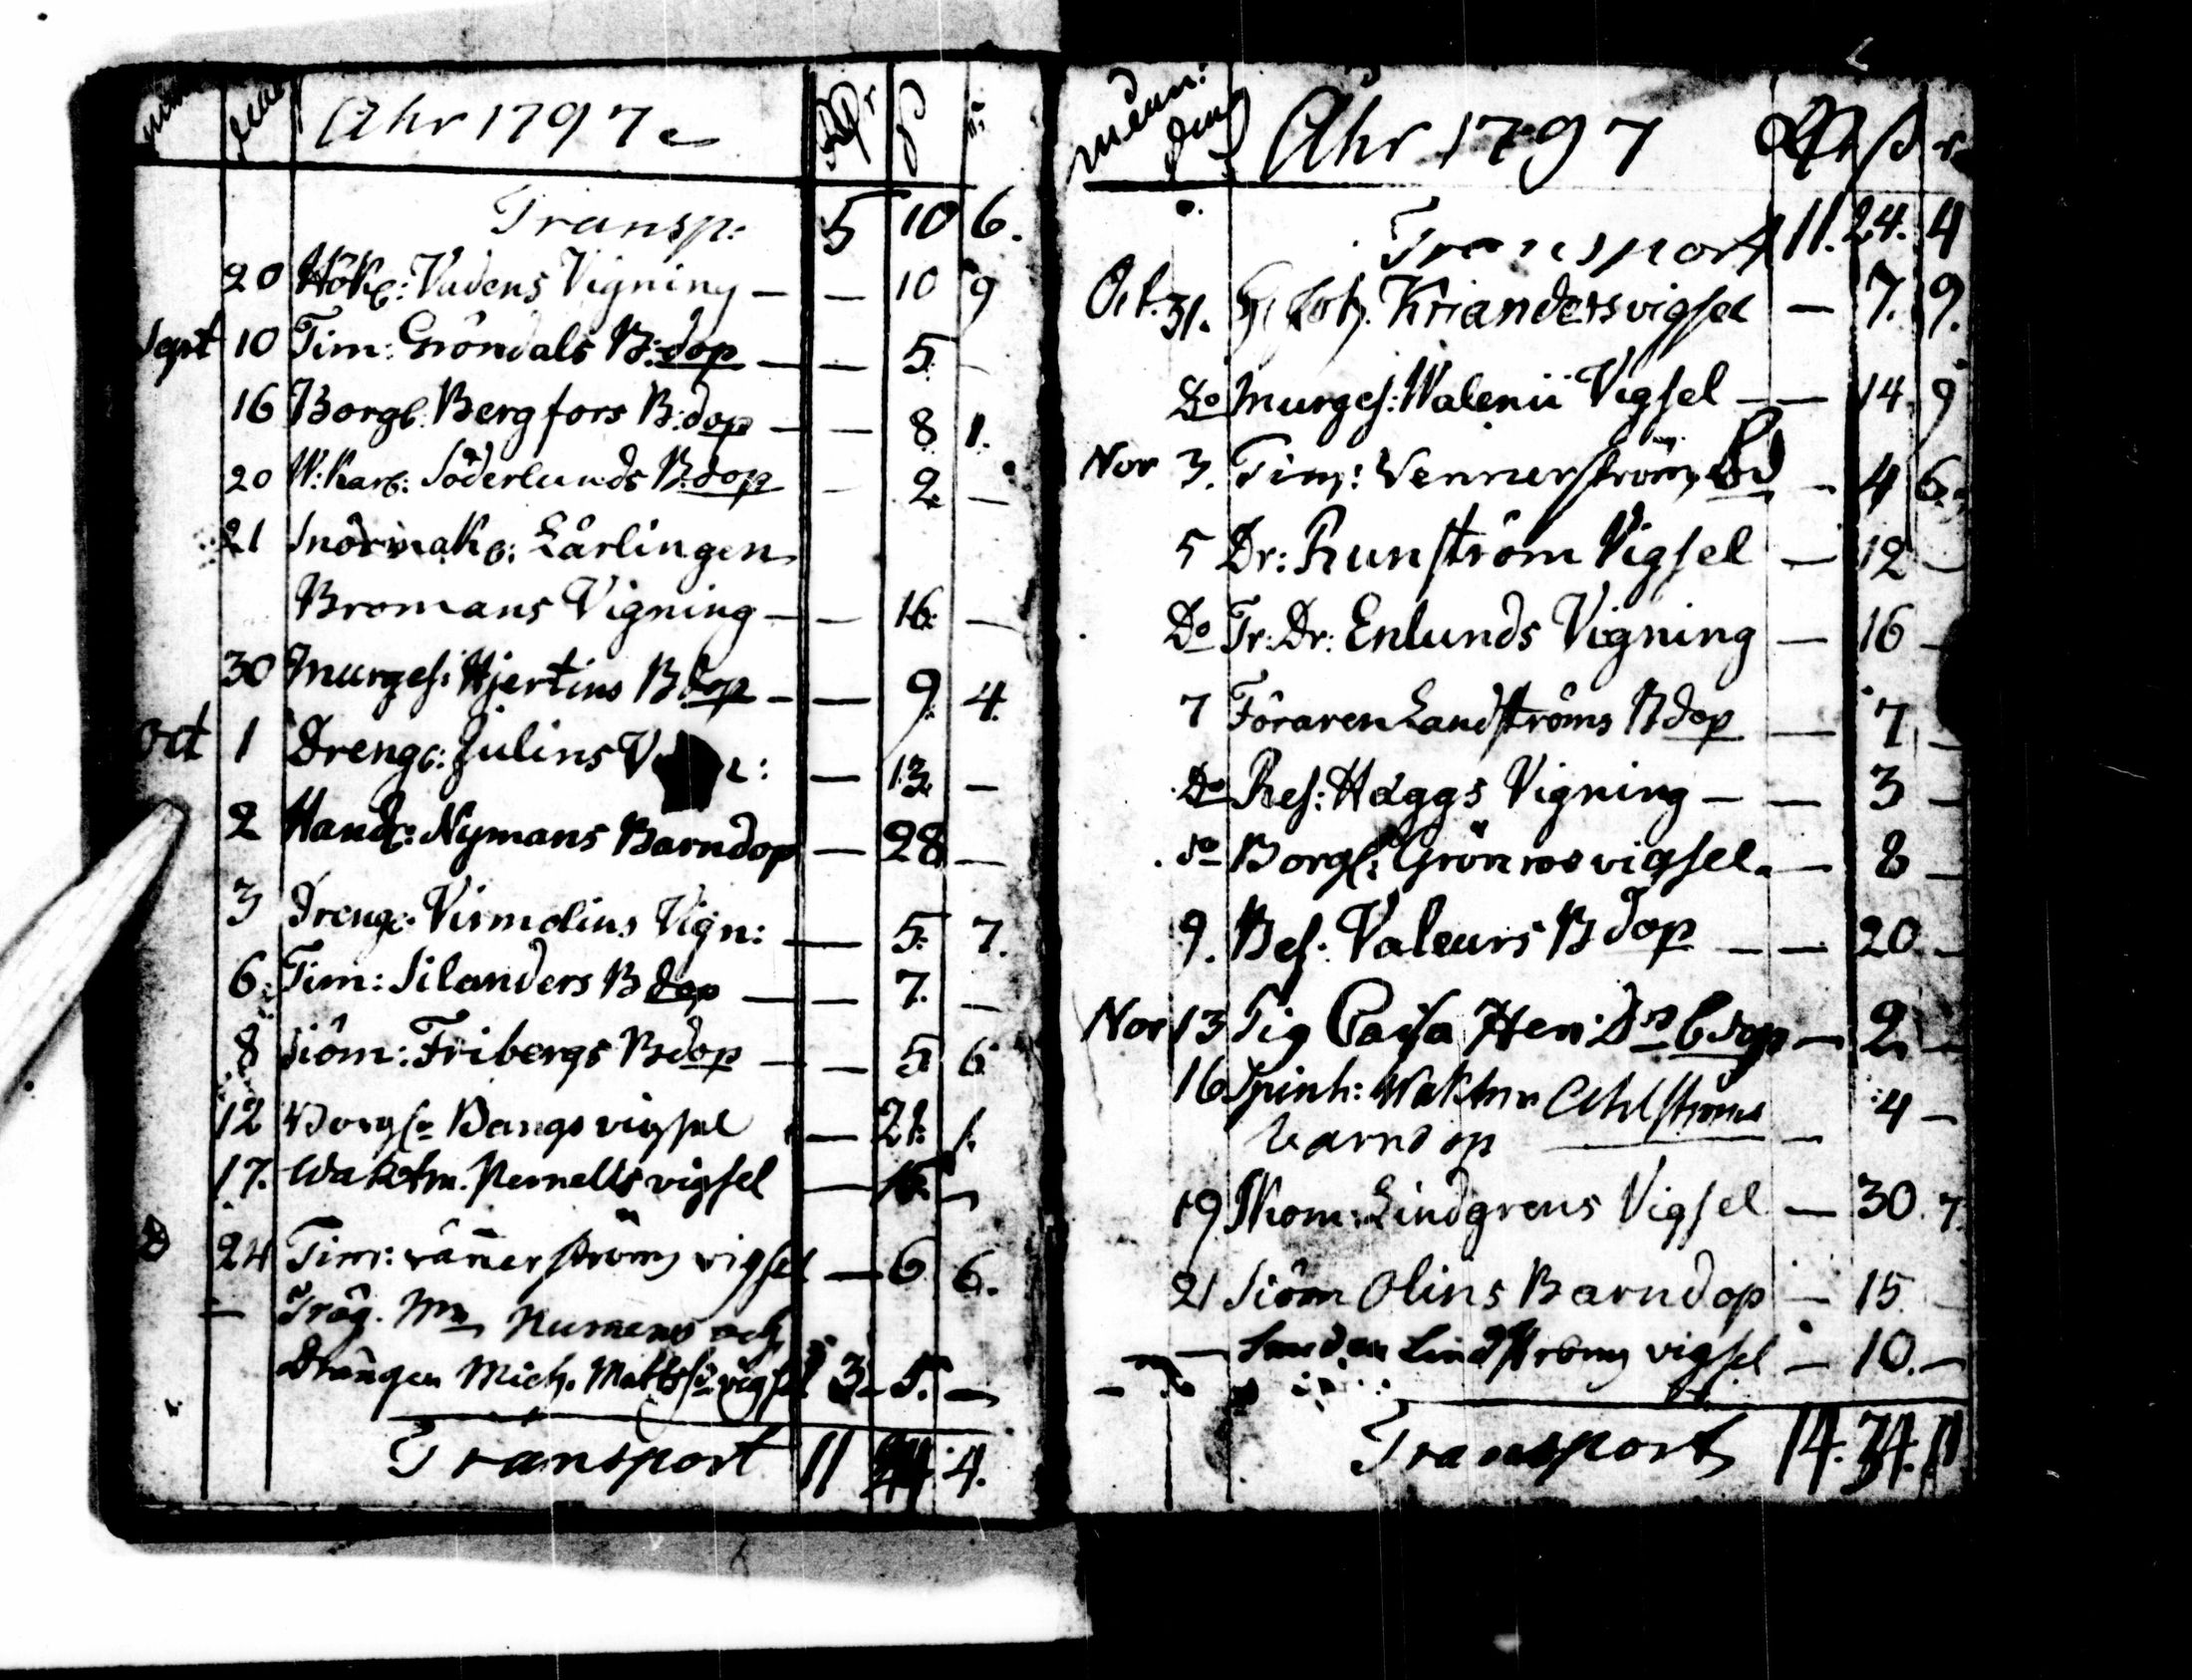 Ahr 1797
Transp: 5 10 6.
20 Hökr: Vadens Vigning — — 10 9
Sept 10 Tim: Gröndals B:dop — — 5. —
16 Borg: Bergfors B:dop — — 8 1.
20 W:karl: Söderlunds B:dop — 2 —
21 Snörmak: Lärlingen
Bromans Vigning — — 16. —
30 Murges: Hjertins Bdop — — 9. 4.
Oct 1 Dreng: Julins — 13. —
2 Handl: Nymans Barndop — 28 —
3 Dreng: Virmolins Vign: — 5. 7.
6. Tim: Silanders B dop — — 7. —
8 Siöm: Fribergs Bdop — — 5 6
12 Borgs Bangs vigsel — 21. 1.
17. Waktm. Pernells vigsel —
24 Tim: vännerströms vigsel — 6 6.
— Träg. Mn och
Drängen Mich. Matts vigsel 3 5. —
Transport 11 24. 4.
månn: dag Åhr 1797 ß r
Transport 11. 24. 4
Oct. 31. Krianders vigsel — 7. 9.
Do Murges: Walenii Vigsel — — 14. 9
Nov 3. Tim: Vennerström — 4 6.
5 Dr: Runström Vigsel — 12 —
Do Tr: Dr: Enlunds Vigning — 16 —
7 Föraren Landströms Bdop — 7 —
Do Ref: Häggs Vigning — — 3 —
do Borg: Grönros vigsel. — 8 —
9. Bes: Valeurs B dop — — 20. —
Nov 13 Pig Caisa Hen: Dr bdop — 2. —
16 Spinh: Waktm Ahlströms 4 —
barndop —
19 Skom: Lindgrens Vigsel — 30. 7.
21 Siöm Olins Barndop — 15. —
— Lindströms vigsel — 10. —
Transport 14. 34. 11